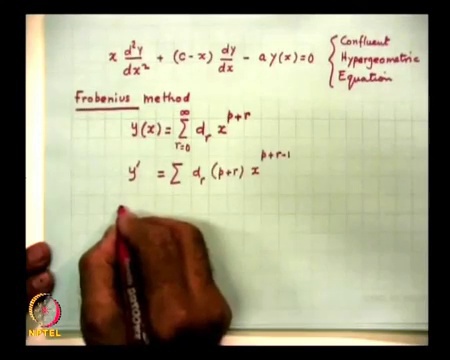 x d²y/dx² + (c-x) dy/dx - a y(x) = 0 { Confluent Hypergeometric Equation
Frobenius method
y(x) = ∑_{r=0}^{∞} d_r x^{p+r}
y' = ∑ d_r (p+r) x^{p+r-1}
NPTEL